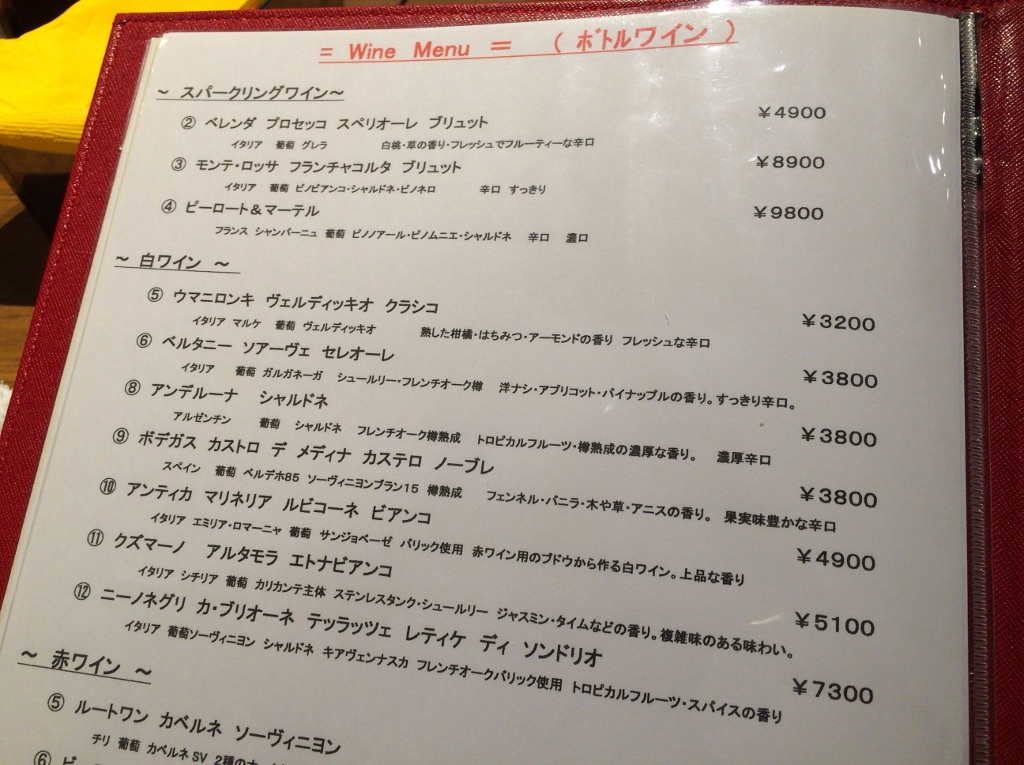 = Wine Menu = (ボトルワイン)
～ スパークリングワイン～
② ベレンダ プロセッコ スペリオーレ ブリュット ￥4900
イタリア 葡萄 グレラ 白桃・草の香り・フレッシュでフルーティーな辛口
③ モンテ・ロッサ フランチャコルタ ブリュット ￥8900
イタリア 葡萄 ピノビアンコ・シャルドネ・ピノネロ 辛口 すっきり
④ ピーロート＆マーテル ￥9800
フランス シャンパーニュ 葡萄 ピノノアール・ピノムニエ・シャルドネ 辛口 濃口
～ 白ワイン ～
⑤ ウマニロンキ ヴェルディッキオ クラシコ ￥3200
イタリア マルケ 葡萄 ヴェルディッキオ 熟した柑橘・はちみつ・アーモンドの香り フレッシュな辛口
⑥ ベルタニー ソアーヴェ セレオーレ ￥3800
イタリア 葡萄 ガルガネーガ シュールリー・フレンチオーク樽 洋ナシ・アプリコット・パイナップルの香り。すっきり辛口。
⑧ アンデルーナ シャルドネ ￥3800
アルゼンチン 葡萄 シャルドネ フレンチオーク樽熟成 トロピカルフルーツ・樽熟成の濃厚な香り。 濃厚辛口
⑨ ボデガス カストロ デ メディナ カステロ ノーブレ ￥3800
スペイン 葡萄 ベルデホ85 ソーヴィニヨンブラン15 樽熟成 フェンネル・バニラ・木や草・アニスの香り。 果実味豊かな辛口
⑩ アンティカ マリネリア ルビコーネ ビアンコ ￥4900
イタリア エミリア・ロマーニャ 葡萄 サンジョベーゼ バリック使用 赤ワイン用のブドウから作る白ワイン。上品な香り
⑪ クズマーノ アルタモラ エトナビアンコ ￥5100
イタリア シチリア 葡萄 カリカンテ主体 ステンレスタンク・シュールリー ジャスミン・タイムなどの香り。複雑味のある味わい。
⑫ ニーノネグリ カ・ブリオーネ テッラッツェ レティケ ディ ソンドリオ ￥7300
イタリア 葡萄ソーヴィニヨン シャルドネ キアヴェンナスカ フレンチオークバリック使用 トロピカルフルーツ・スパイスの香り
～ 赤ワイン ～
⑤ ルートワン カベルネ ソーヴィニヨン
チリ 葡萄 カベルネSV 2種の
⑥